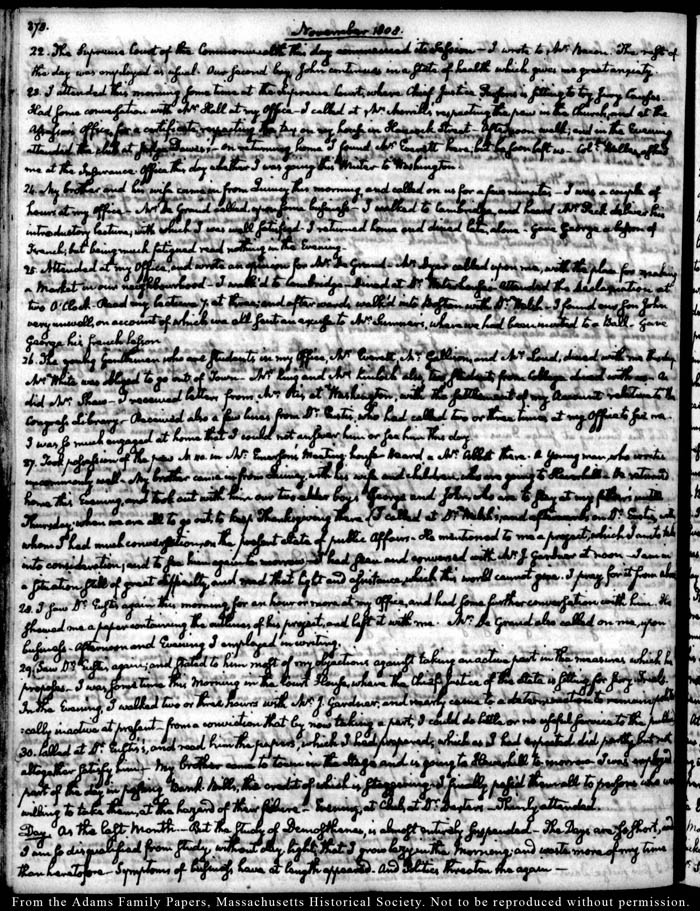 378.
November 1808.
22. The Supreme Court of the Commonwealth this day commenced its Session — I wrote to Mr. Bacon. The rest of
the day was employed as usual. Our second boy John continues in a state of health which gives me great anxiety.
23. I attended this morning some time at the Supreme Court, where Chief Justice Parsons is sitting to try Jury Causes.
Had some conversation with Mr. Hall at my Office — I called at Mr. respecting the pew in the Church, and at the
Assessors Office, for a certificate, respecting the tax on my house in Hancock Street. Afternoon walk; and in the Evening
attended the club at Judge Davis's — on returning home I found Mr. Everett here, but he soon left us — Coll. asked
me at the Insurance Office this day whether I was going this Winter to Washington.
24. My brother and his wife came in from Quincy this morning and called on us for a few minutes — I was a couple of
hours at my Office — Mr. De Grand called, upon some business — I walked to Cambridge, and heard Mr. Peck deliver his
introductory lecture, with which I was well satisfied. I returned home and dined late, alone — Gave George a lesson of
French; but being much fatigued read nothing in the Evening.
25. Attended at my Office, and wrote an opinion for Mr. De Grand — Mr. called upon me, with the plan for making
a Market in our neighbourhood — I walk'd to Cambridge — dined at Dr. Waterhouse's — Attended the declamation at
two O'Clock — Read my lecture 7. at three; and afterwards, walk'd into Boston with Dr. Welsh — I found our Son John
very unwell, on account of which we all sent an excuse to Mr. Sumner's, where we had been invited to a Ball. Gave
George his french lesson.
26. The young Gentlemen who are Students in my Office, Mr. Everett, Mr. Gallison, and Mr. dined with me this day.
Mr. White was obliged to go out of Town — Mr. King and Mr. Kinloch also, two Students from College dined with us — As
did Mr. Shaw — I received letters from Mr. Otis, at Washington, with the settlement of my Account relative to the
Congress Library. Received also a few lines from Dr. Eustis, who had called two or three times at my Office to see me.
I was so much engaged at home that I could not answer him or see him this day.
27. Took possession of the pew in Mr. Emerson's Meeting house — Heard a Mr. Abbot there. A young man, who wrote
uncommonly well — My brother came in from Quincy with his wife and children, who are going to Haverhill — He returned
home this Evening, and took out with him our two elder boys George and John, who are to stay at my father's until
Thursday, when we are all to go out, to keep Thanksgiving there. I called at Dr. Welsh's, and afterwards on Dr. Eustis, with
whom I had much conversation, on the present state of public Affairs — He mentioned to me a project, which I am to take
into consideration, and to see him again to-morrow — I had seen and conversed with Mr. J. Gardner at noon — I am in
a situation full of great difficulty, and need that light and assistance, which this world cannot give. I pray for it from above.
28. I saw Dr. Eustis again this morning for an hour or more at my Office, and had some further conversation with him. He
shewed me a paper containing the outlines of his project, and left it with me. Mr. De Grand also called on me, upon
business — Afternoon and Evening I employed in writing.
29. Saw Dr. Eustis again; and stated to him most of my objections against taking an active part in the measures which he
proposes. I was some time this Morning in the Court House, where the Chief Justice of the State is sitting for Jury Trials.
In the Evening, I walked two or three hours with Mr. J. Gardner, and nearly came to a determination to remain
inactive at present, from a conviction that by now taking a part, I could do little or no useful service to the public.
30. Called at Dr. Eustis's, and read him the papers, which I had prepared, which as I had expected did partly but not
altogether satisfy him — My brother came to town in the Stage and is going to Haverhill to-morrow. I was employed
part of the day in passing Bank-Bills, the credit of which is staggering. I finally passed them all to persons who were
willing to take them, at the hazard of their failure — Evening, at Club, at Dr. Dexter's — Thinly attended.
Day. As the last Month — But the study of Demosthenes, is almost entirely suspended — The Days are so short, and
I am so disqualified from study, without day light, that I grow lazy in the Morning; and waste more of my time
than heretofore — Symptoms of business have at length appeared. And Politics threaten me again —
From the Adams Family Papers, Massachusetts Historical Society. Not to be reproduced without permission.